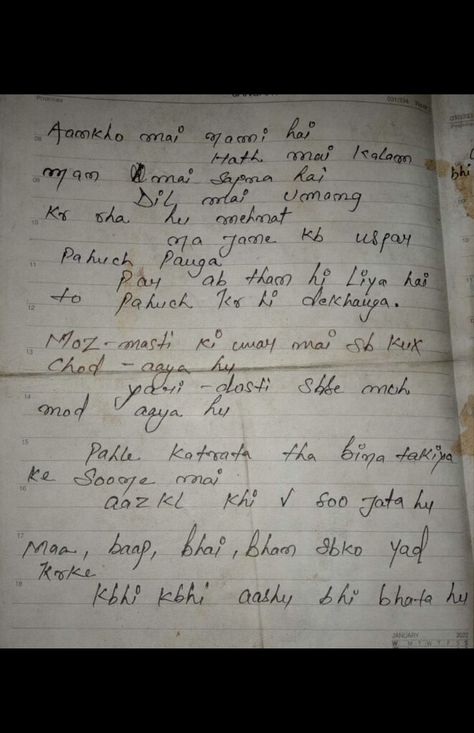 JANUARY
031/334
Aamkho mai nami hai
Hath mai Kalam
man mai sapna hai
DIL mai umang
Kr rha hu mehnat
na jane kb uspar
Pahuch Pauga
Par ab tham hi Liya hai
to Pahuch Kr hi dekhauga.
Moz-masti ki umar mai sb kux
Chod - agya hu
yari - dosti sbse moh
mod agya hu
Pahle Katrata tha bina takiya
ke Soone mai
aaz KL khi v soo jata hu
Maa, baap, bhai, bhan sbko yad
Krke
Kbhi Kbhi aashu bhi bhata hu
bhi
08
09
10
11
12
13
14
15
16
17
18
JANUARY 2022
W M T W T F S S